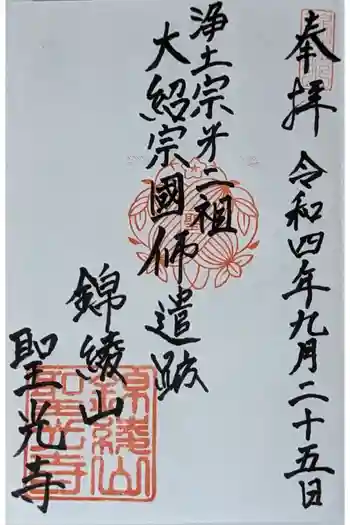 奉拝
令和四年九月二十五日
浄土宗第二祖
大紹宗國師遺跡
錦綾山
聖光寺
錦綾山
聖光寺